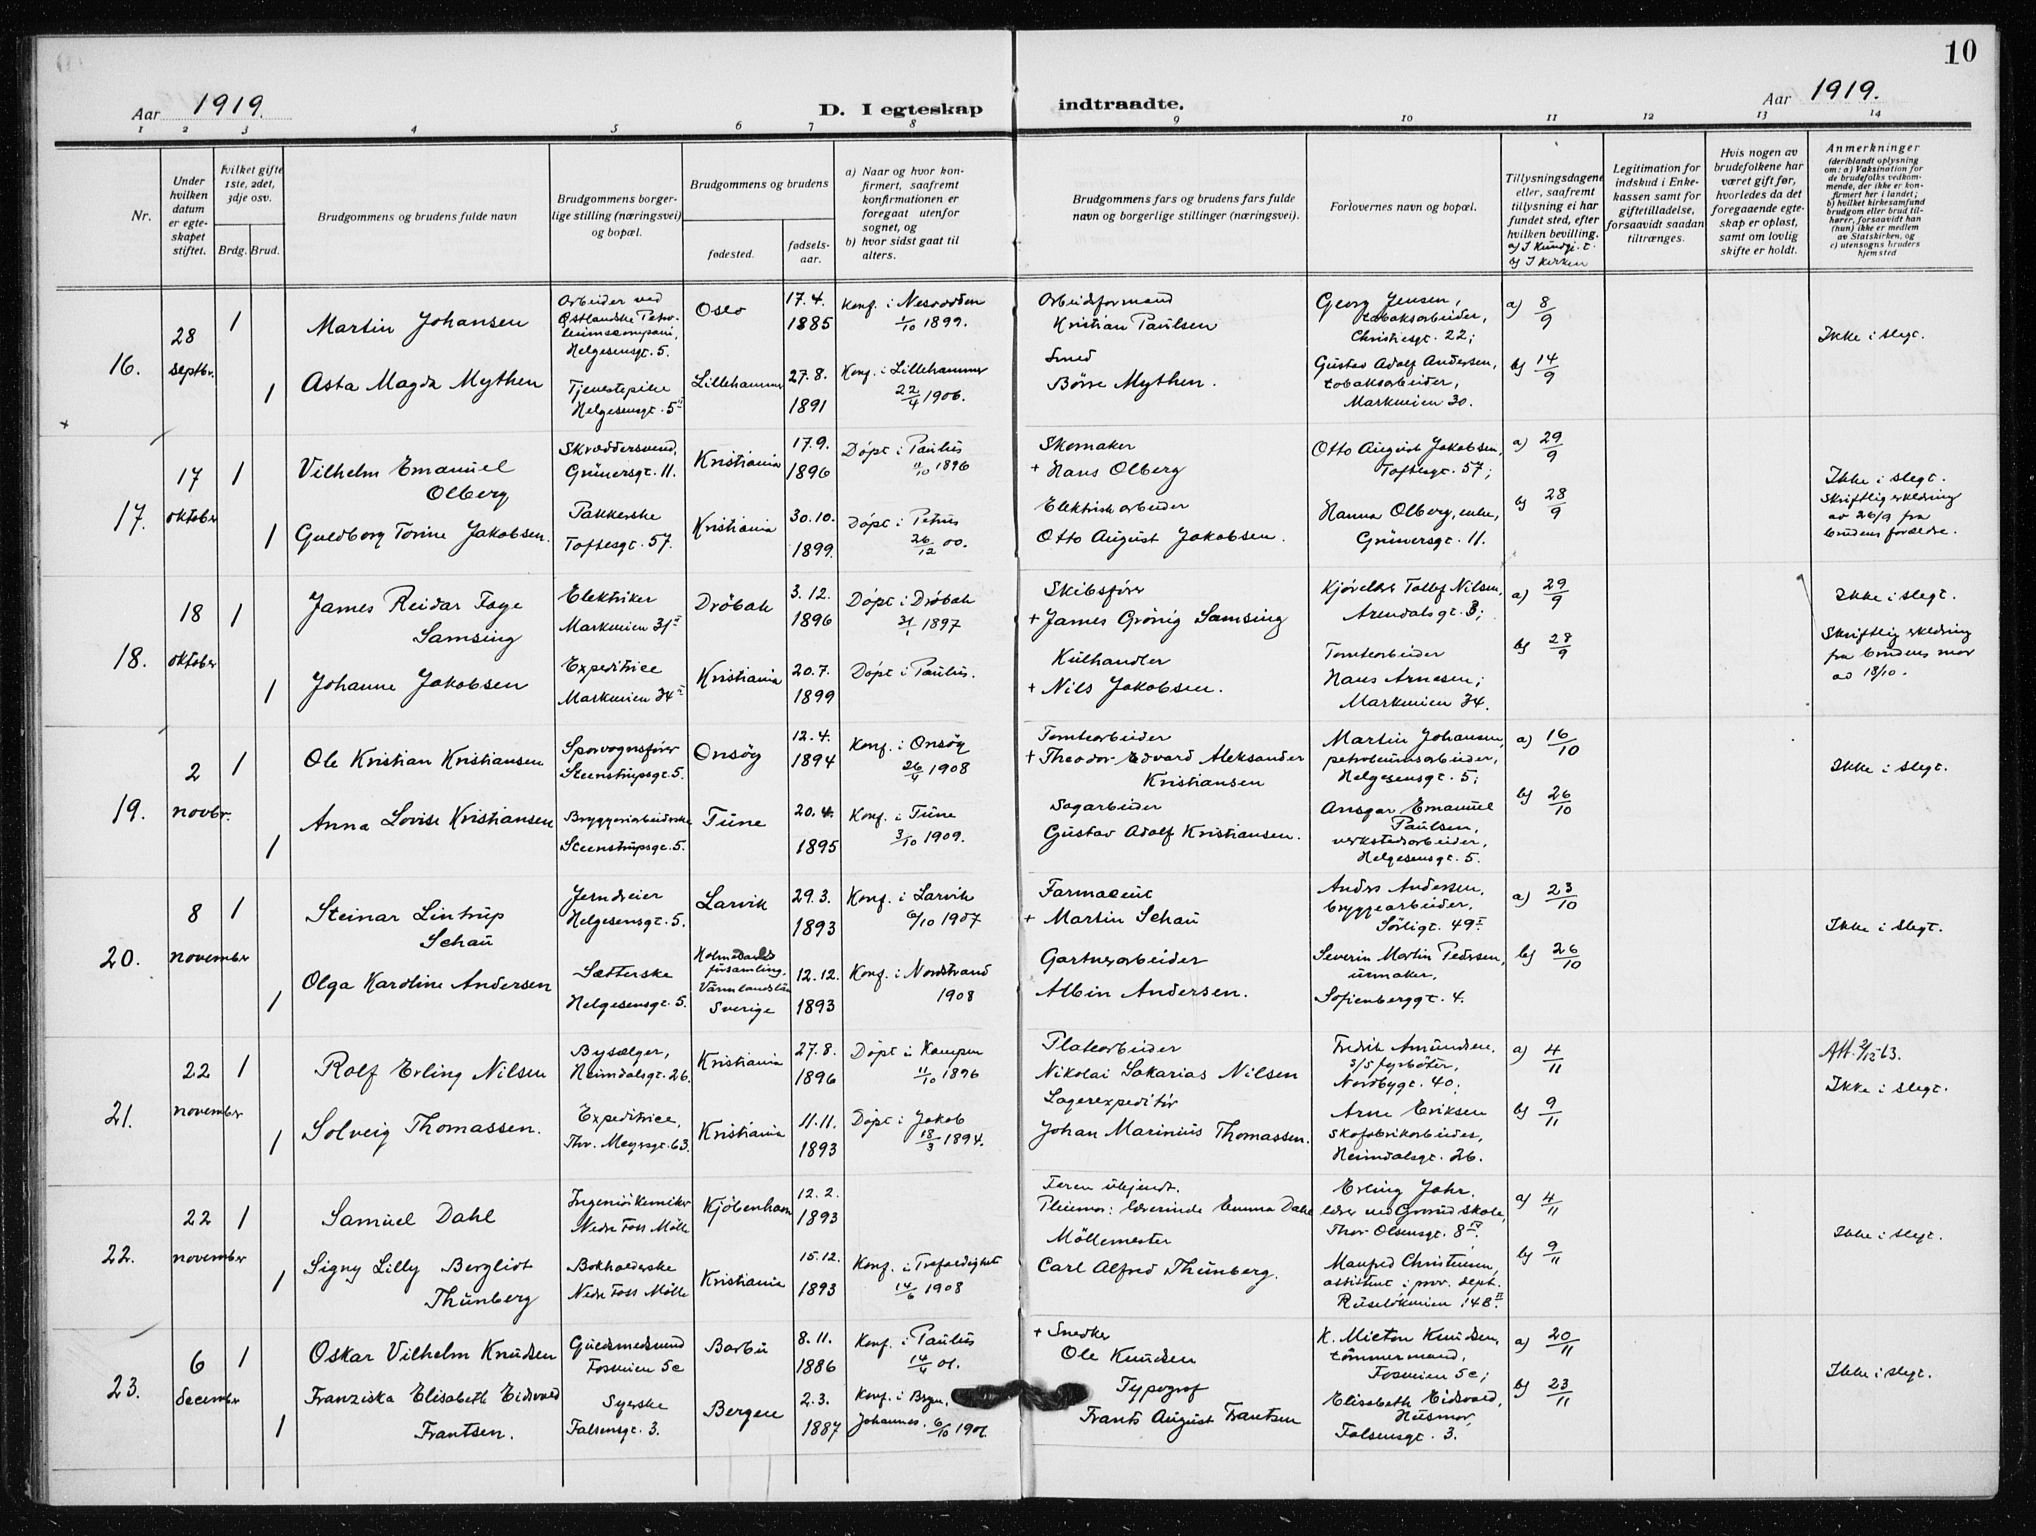 10
Aar 1919.
D. I egteskap indtraadte.
Aar 1919.
1 2 3 4 5 6 7 8 9 10 11 12 13 14
Nr.
Under
hvilken
datum
er egte-
skapet
stiftet.
Hvilket gifte
1ste, 2det,
3dje osv.
Brdg. Brud.
Brudgommens og brudens fulde navn
Brudgommens borger-
lige stilling (næringsvei)
og bopæl.
Brudgommens og brudens
fødested.
fødsels-
aar.
a) Naar og hvor kon-
firmert, saafremt
konfirmationen er
foregaat utenfor
sognet, og
b) hvor sidst gaat til
alters.
Brudgommens fars og brudens fars fulde
navn og borgerlige stillinger (næringsvei).
Forlovernes navn og bopæl.
Tillysningsdagene
eller, saafremt
tillysning ei har
fundet sted, efter
hvilken bevilling.
a) I Kundgj. t.
b) I kirken
Legitimation for
indskud i Enke-
kassen samt for
giftetilladelse,
forsaavidt saadan
tiltrænges.
Hvis nogen av
brudefolkene har
været gift før,
hvorledes da det
foregaaende egte-
skap er opløst,
samt om lovlig
skifte er holdt.
Anmerkninger
(deriblandt oplysning
om: a) Vaksination for
de brudefolks vedkom-
mende, der ikke er kon-
firmert her i landet;
b) hvilket kirkesamfund
brudgom eller brud til-
hører, forsaavidt han
(hun) ikke er medlem
av Statskirken, og
c) utensogns bruders
hjemsted
16.
28
septbr.
1
Martin Johansen
Arbeider ved
Østlandske Petro-
leumscompani,
Helgesensgt. 5.
Oslo
17.4.
1885
Konf. i Nesodden
1/10 1899.
Arbeidsformand
Kristian Paulsen
Georg Jensen,
tobaksarbeider,
Christiesgt. 22;
a) 8/9
Ikke i slegt.
1
Asta Magda Mythen
Tjenestepike
Helgesensgt. 5 II
Lillehammer
27.8.
1891
Konf. i Lillehammer
22/4 1906.
Smed
Børre Mythen.
Gustav Adolf Andersen,
tobaksarbeider,
Markveien 30.
b) 14/9
17.
17
oktober
1
Vilhelm Emanuel
Olberg
Skræddersvend,
Grünersgt. 11.
Kristiania
17.9.
1896
Døpt i Paulus
11/10 1896
Skomaker
+ Hans Olberg
Otto August Jakobsen,
Toftesgt. 57;
a) 29/9
Ikke i slegt.
Skriftlig erklæring
av 26/9 fra
brudens forældre.
1
Guldborg Torine Jakobsen.
Pakkerske
Toftesgt. 57.
Kristiania
30.10.
1899.
Døpt i Petrus
26/12 00.
Elektrisk arbeider
Otto August Jakobsen.
Hanna Olberg, enke,
Grünersgt. 11.
b) 28/9
18.
18
oktober
1
James Reidar Faye
Samsing
Elektriker
Markveien 31 II
Drøbak
3.12.
1896
Døpt i Drøbak
31/1 1897
Skibsfører
+ James Grønig Samsing
Kjøreleder Tollef Nilsen,
Arendalsgt. 3;
a) 29/9
Ikke i slegt.
Skriftlig erklæring
fra brudens mor
av 18/10.
1
Johanne Jakobsen
Expeditrice
Markveien 34 II
Kristiania
20.7.
1899
Døpt i Paulus.
Kulhandler
+ Nils Jakobsen.
Tomtearbeider
Hans Arnesen;
Markveien 34.
b) 28/9
19.
2
novbr.
1
Ole Kristian Kristiansen
Sporvognsfører
Steenstrupsgt. 5.
Onsøy
12.4.
1894
Konf. i Onsøy
26/4 1908
Tomtearbeider
+ Theodor Edvard Aleksander
Kristiansen
Martin Johansen,
petroleumsarbeider,
Helgesensgt. 5;
a) 16/10
Ikke i slegt.
1
Anna Lovise Kristiansen
Bryggeriarbeiderske
Steenstrupsgt. 5.
Tune
20.4.
1895
Konf. i Tune
3/10 1909.
Sagarbeider
Gustav Adolf Kristiansen.
Ansgar Emanuel
Paulsen,
verkstedarbeider,
Helgesensgt. 5.
b) 26/10
20.
8
november
1
Steinar Lintrup
Schau
Jerndreier
Helgesensgt. 5.
Larvik
29.3.
1893
Konf. i Larvik
6/10 1907
Farmaceut
+ Martin Schau
Anders Andersen,
bryggearbeider,
Sörligt. 49 II
a) 23/10
Ikke i slegt.
1
Olga Karoline Andersen
Sætterske
Helgesensgt. 5.
Holmedals
församling,
Värmlandslän
Sverige
12.12.
1893
Konf. i Nordstrand
1908
Gartnerarbeider
Albin Andersen.
Severin Martin Pedersen,
urmaker,
Sofienberggt. 4.
b) 26/10
21.
22
november
1
Rolf Erling Nilsen
Bysælger,
Heimdalsgt. 26.
Kristiania
27.8.
1896
Døpt i Kampen
11/10 1896
Platearbeider
Nikolai Sakarias Nilsen
Fredrik Amundsen,
S/S fyrbøter,
Nordbygt. 40.
a) 4/11
Att. 2/12 63.
Ikke i slegt.
1
Solveig Thomassen.
Expeditrice,
Thv. Meyersgt. 63.
Kristiania
11.11.
1893
Døpt i Jakob
18/3 1894.
Lagerexpeditør
Johan Marinius Thomassen.
Arne Eriksen
skofabrikarbeider,
Heimdalsgt. 26.
b) 9/11
22.
22
november
1
Samuel Dahl
Ingeniörkemiker
Nedre Foss Mölle
Kjöbenhavn
12.2.
1893
Faren ukjendt.
Pleiemor: lærerinde Emma Dahl
Erling Johr.
lærer ved Grorud skole,
Thor Olsensgt. 8 IV
a) 4/11
Ikke i slegt.
1
Signy Lilly Bergliot
Thünberg
Bokholderske
Nedre Foss Mölle
Kristiania
15.12.
1893
Konf. i Trefoldighet
14/6 1908
Møllemester
Carl Alfred Thünberg.
Manfred Christensen,
assistent i prov. dept.
Ruseløkveien 14B II
b) 9/11
23.
6
december
1
Oskar Vilhelm Knudsen
Guldsmedsvend
Fosveien 5c
Barbu
8.11.
1886
Konf. i Paulus
14/4 01.
+ Snedker
Ole Knudsen
K. Milton Knudsen,
tømmermand,
Fosveien 5c;
a) 20/11
Ikke i slegt.
1
Franziska Elisabeth Eidsvold
Frantsen.
Syerske
Falsensgt. 3.
Bergen
2.3.
1887
Konf. i Bergen,
Johannes. 6/10 1901.
Typograf
Frants August Frantsen
Elisabeth Eidsvold,
Husmor,
Falsensgt. 3.
b) 23/11